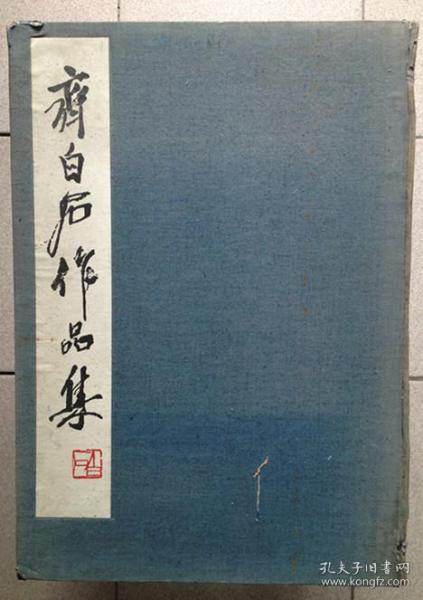 齊白石作品集
孔夫子旧书网
www.kongfz.com